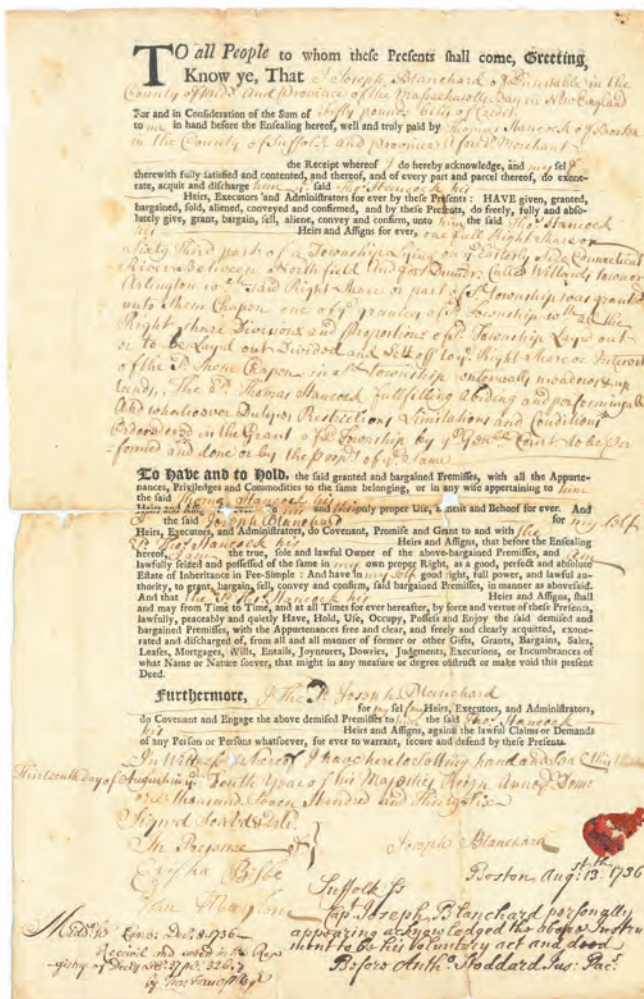 TO all People to whom these Presents shall come, Greeting,
Know ye, That I Joseph Blanchard of Dunstable in the
County of Midx And Province of the Massachusetts Bay in New England
For and in Consideration of the Sum of fifty pounds bills of Credit
to me in hand before the Ensealing hereof, well and truly paid by Thomas Hancock of Boston
in the County of Suffolk and province aforesd Merchant
the Receipt whereof I do hereby acknowledge, and my self
therewith fully satisfied and contented, and thereof, and of every part and parcel thereof, do exone-
rate, acquit and discharge him ye said Thos Hancock his
Heirs, Executors and Administrators for ever by these Presents: HAVE given, granted,
bargained, sold, aliened, conveyed and confirmed, and by these Presents, do freely, fully and abso-
lutely give, grant, bargain, sell, aliene, convey and confirm, unto him the said Thos Hancock
his Heirs and Assigns for ever, one full Right Share or
Sixty third part of a Township Lying on ye Easterly side Connecticut
River Between Northfield And fort Dummr Called Willards town or
Arlington wch said Right Share or part of sd township was granted
unto Them Chapon one of ye grantees of sd Township with all the
Right share Divisions and Proportions of sd Township Layd out
or to be Layd out Divided and Sett off to ye Right Share or Interest
of the sd Chapon in sd township meadows & up
lands, The sd Thomas Hancock fullfilling abiding and performing all
And whatsoever Dutys Restrictions Limitations and Conditions
Ordered in the Grant of sd Township by ye Genll Court to be Per
formed and done or by the propts of ye same
To Have and to Hold, the said granted and bargained Premisses, with all the Appurte-
nances, Priviledges and Commodities to the same belonging, or in any wise appertaining to him
the said Thomas Hancock his
Heirs and Assigns for ever. To his and their only proper Use, Benefit and Behoof for ever. And
I the said Joseph Blanchard for my self
Heirs, Executors, and Administrators, do Covenant, Promise and Grant to and with the
sd Thos Hancock his Heirs and Assigns, that before the Ensealing
hereof, I am the true, sole and lawful Owner of the above-bargained Premisses, and am
lawfully seized and possessed of the same in my own proper Right, as a good, perfect and absolute
Estate of Inheritance in Fee-Simple: And have in my self good right, full power, and lawful au-
thority, to grant, bargain, sell, convey and confirm, said bargained Premisses, in manner as abovesaid.
And that the sd Thos Hancock his Heirs and Assigns, shall
and may from Time to Time, and at all Times for ever hereafter, by force and vertue of these Presents,
lawfully, peaceably and quietly Have, Hold, Use, Occupy, Possess and Enjoy the said demised and
bargained Premisses, with the Appurtenances free and clear, and freely and clearly acquitted, exone-
rated and discharged of, from all and all manner of former or other Gifts, Grants, Bargains, Sales,
Leases, Mortgages, Wills, Entails, Joyntures, Dowries, Judgments, Executions, or Incumbrances of
what Name or Nature soever, that might in any measure or degree obstruct or make void this present
Deed.
Furthermore, I The sd Joseph Blanchard
for my self my Heirs, Executors, and Administrators,
do Covenant and Engage the above demised Premisses to him the said Thos Hancock
his Heirs and Assigns, against the lawful Claims or Demands
of any Person or Persons whatsoever, for ever to warrant, secure and defend by these Presents.
In Witness whereof I have hereto Sett my hand and Seal this
thirteenth day of August in ye Tenth Year of his Majesties Reign Annoq Domi
one thousand Seven Hundred and Thirty Six
Signed Seald & Deld
In Presence of
Joseph Blanchard
Elisha Bisbe
Boston Augst 13th 1736
John Maylem
Suffolk ss
Capt Joseph Blanchard personally
appearing acknowledged the above Instru
ment to be his voluntary act and deed
Before Antho Stoddard Jus: Pacs
Midds Decr 8 1736
Received and entred in the Reg
istry of Deeds